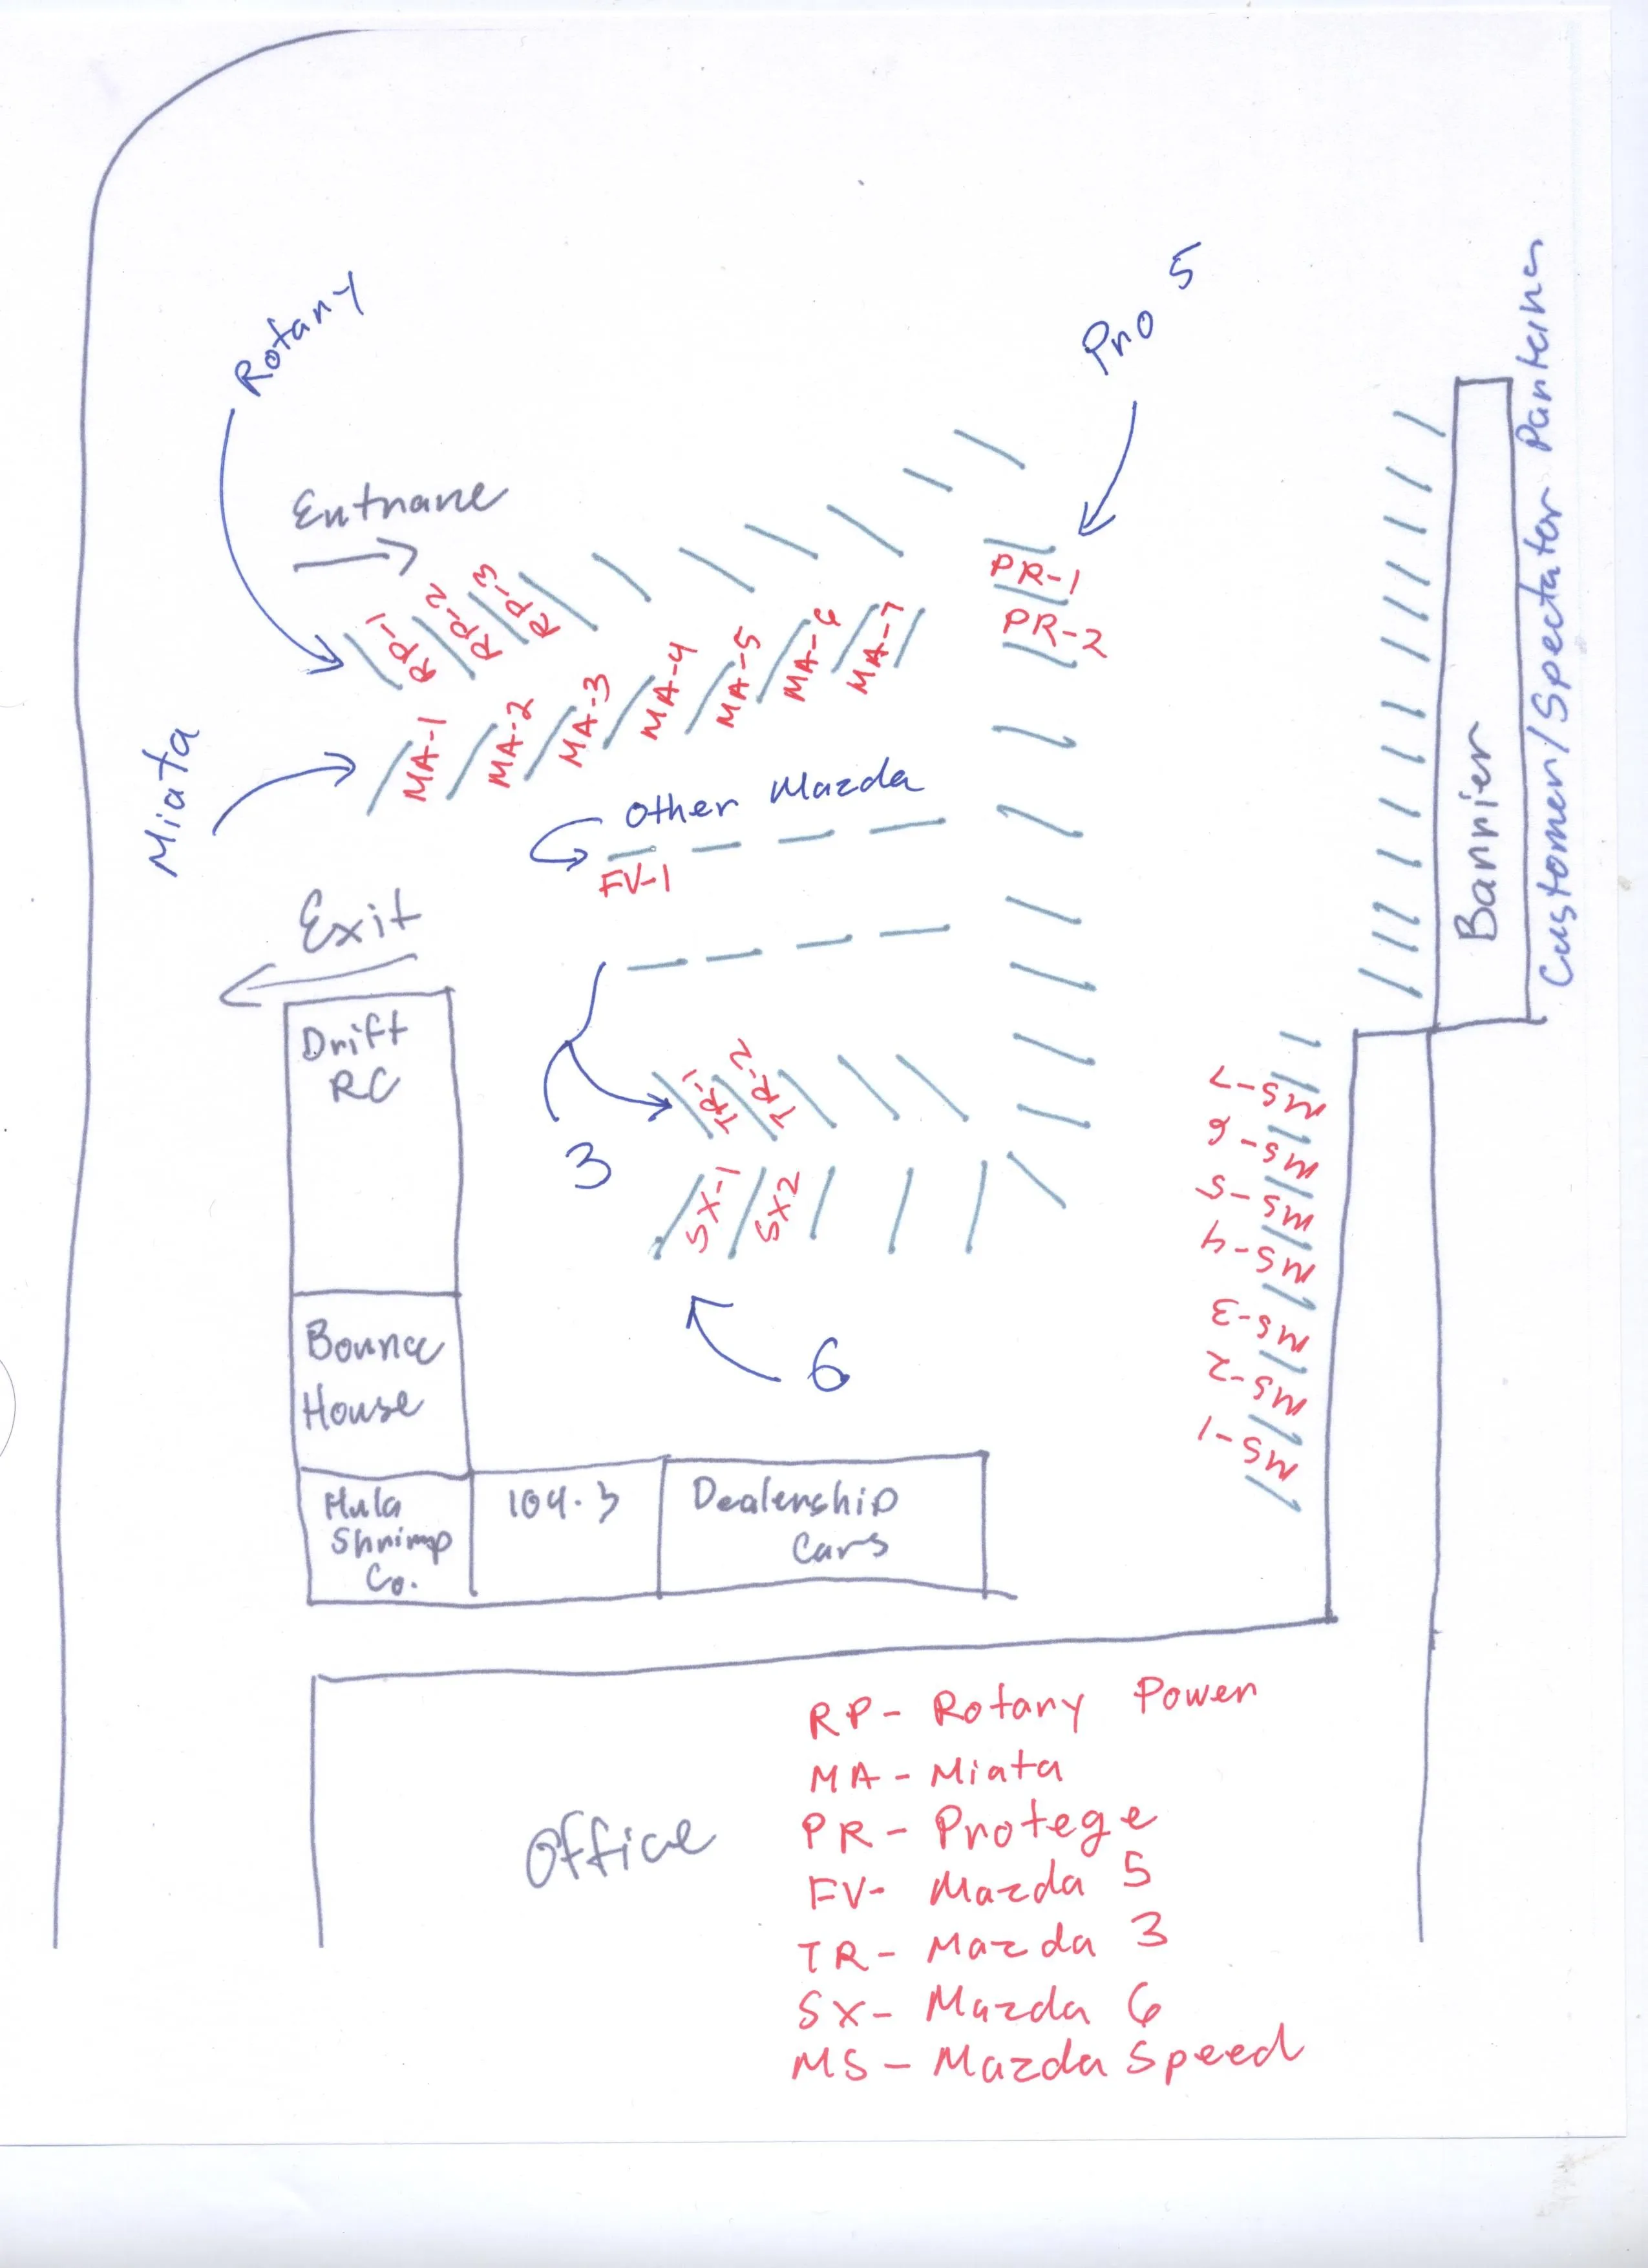 Rotary
Pro 5
Entrane
RP-1
RP-2
RP-3
PR-1
PR-2
MA-1
MA-2
MA-3
MA-4
MA-5
MA-6
MA-7
Miata
Other Mazda
FV-1
Exit
Barrier
Customer/Spectator Parking
Drift
RC
TR-1
TR-2
3
SX-1
SX2
6
MS-7
MS-6
MS-5
MS-4
MS-3
MS-2
MS-1
Bounce
House
Hula
Shrimp
Co.
104.3
Dealership
Cars
Office
RP- Rotary Power
MA - Miata
PR - Protege
FV- Mazda 5
TR- Mazda 3
SX- Mazda 6
MS - Mazda Speed